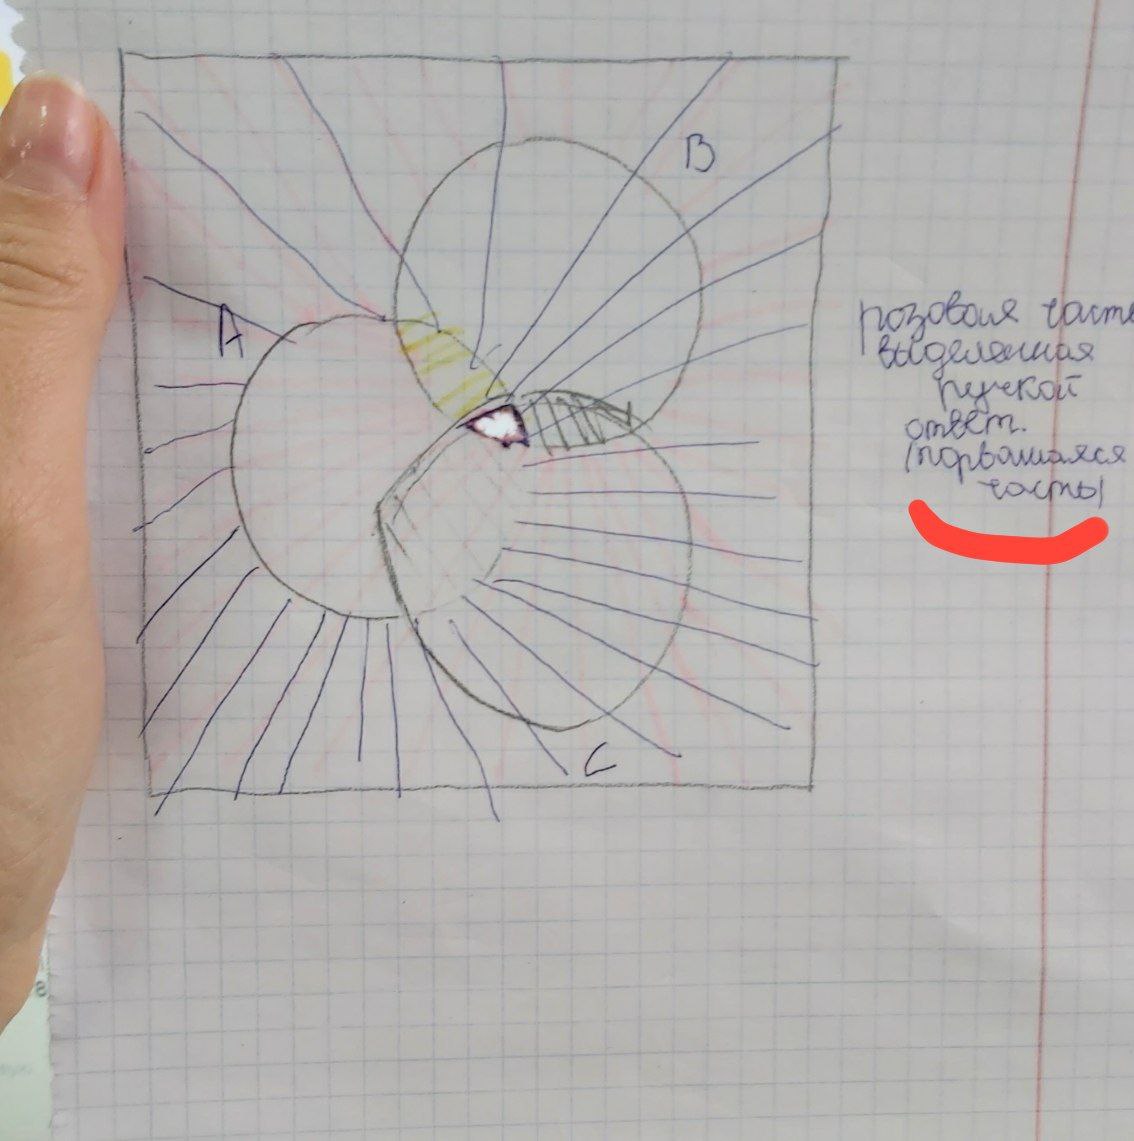 B
A
розовая часть
выделенная
ручкой
ответ.
(порвавшаяся
часть)
C